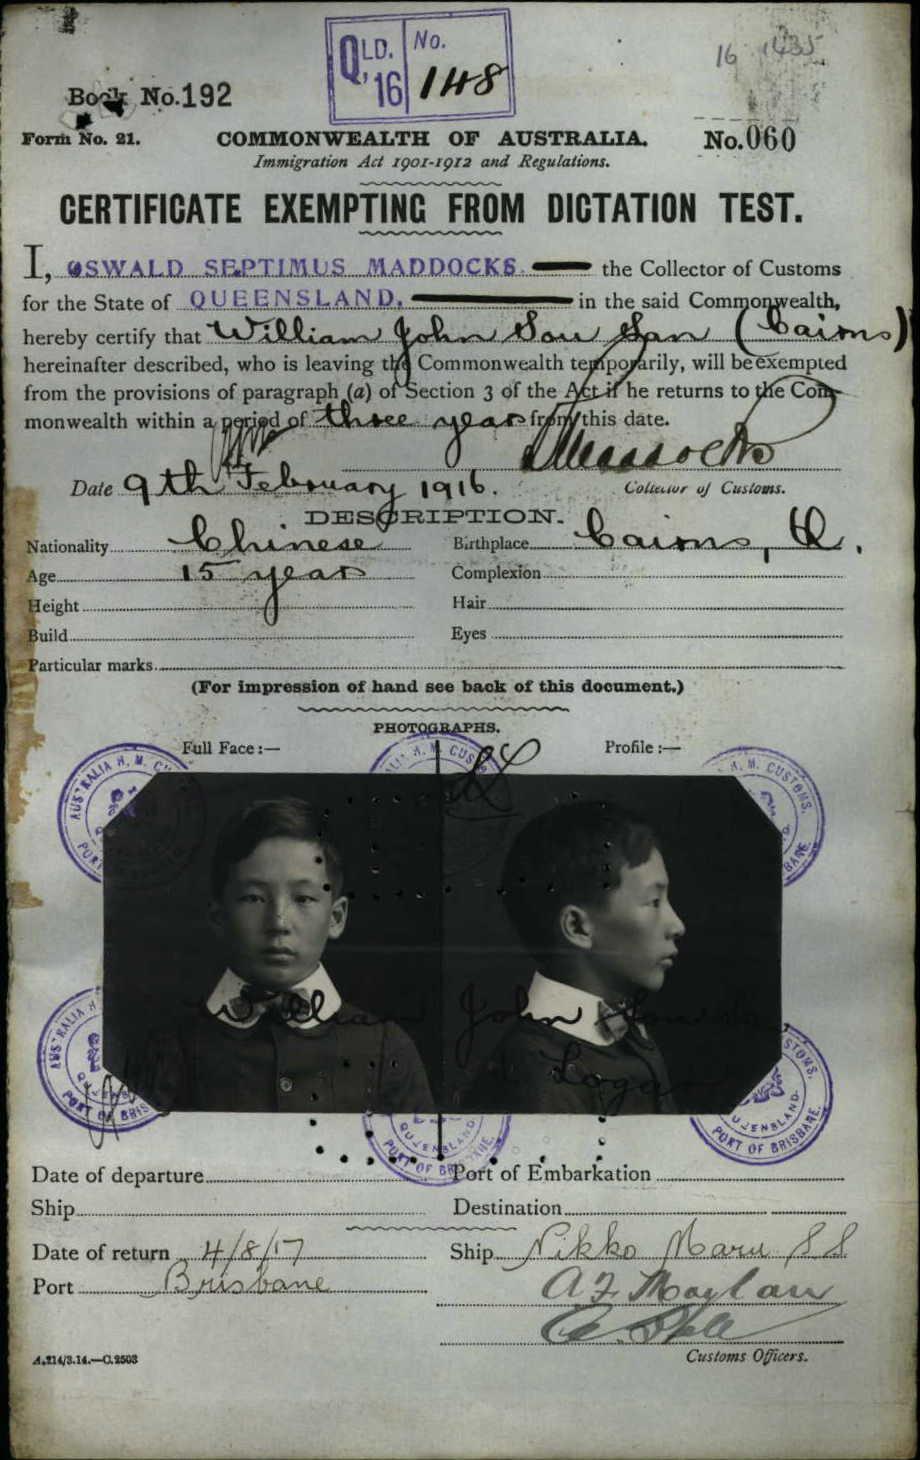 QLD. No.
16 148
16 1435
Book No.192
Form No. 21. COMMONWEALTH OF AUSTRALIA. No.060
Immigration Act 1901-1912 and Regulations.
CERTIFICATE EXEMPTING FROM DICTATION TEST.
I, OSWALD SEPTIMUS MADDOCKS the Collector of Customs
for the State of QUEENSLAND. in the said Commonwealth,
hereby certify that William John Sou San (Cairns)
hereinafter described, who is leaving the Commonwealth temporarily, will be exempted
from the provisions of paragraph (a) of Section 3 of the Act if he returns to the Com-
monwealth within a period of three years from this date.
Date 9th February 1916. Collector of Customs.
DESCRIPTION.
Nationality Chinese Birthplace Cairns, Q.
Age 15 years Complexion
Height Hair
Build Eyes
Particular marks
(For impression of hand see back of this document.)
PHOTOGRAPHS.
Full Face:— Profile:—
AUSTRALIA H. M. CUSTOMS. QUEENSLAND. PORT OF BRISBANE
William John
Logan
Date of departure Port of Embarkation
Ship Destination
Date of return 4/8/17 Ship Nikko Maru SS
Port Brisbane
Customs Officers.
A.214/3.14.—C.2503